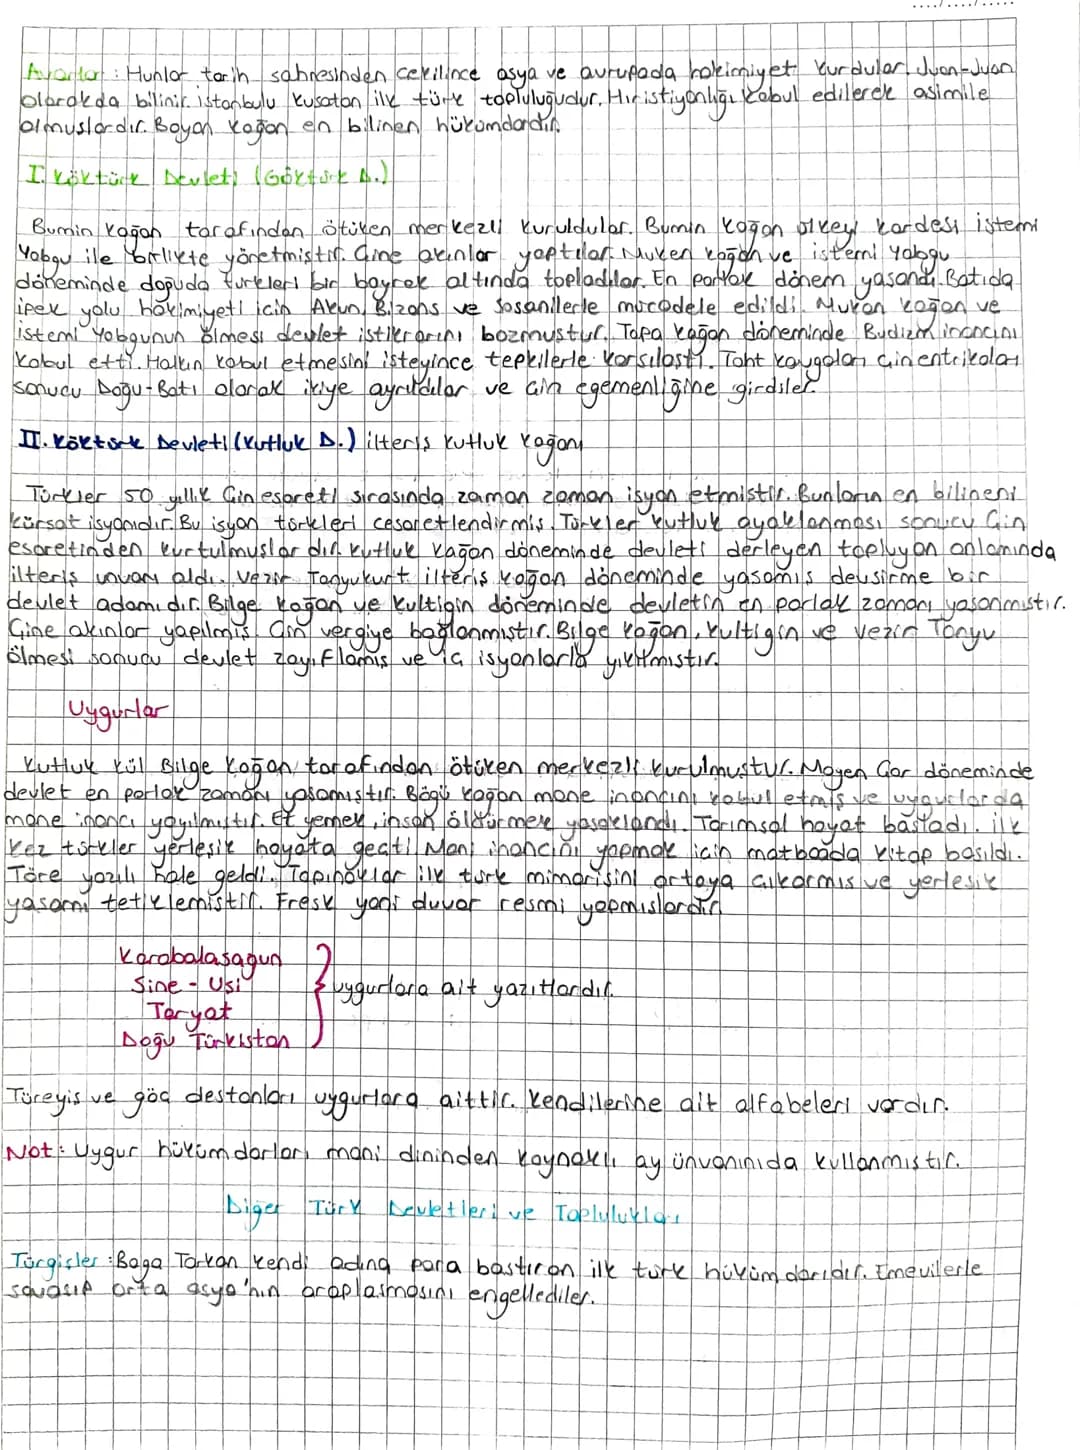 ..../..../.....
Avarlar : Hunlar tarih sahnesinden çekilince asya ve avrupada hakimiyet kurdular. Juan-Juan
olarakda bilinir. istanbulu kusatan ilk türk topluluğudur. Hıristiyanlığı kabul edilerek asimile
olmuslardır. Bayan kağan en bilinen hükümdardır.
I. Köktürk Devleti (Göktürk D.)
Bumin kağan tarafından ötüken merkezli kuruldular. Bumin kağan ülkeyi kardesi istemi
Yabgu ile birlikte yönetmistir. Çine akınlar yaptılar. Muken kağan ve istemi Yabgu
döneminde doğuda türkleri bir bayrak altında topladılar. En parlak dönem yasandı. Batıda
ipek yolu hakimiyeti icin Akun, Bizans ve Sasanilerle mücadele edildi. Mukan kağan ve
istemi Yabgunun ölmesi devlet istikrarını bozmustur. Tapa kağan döneminde Budizm inancını
kabul etti. Halkın kabul etmesini isteyince tepkilerle karsılastı. Taht kavgaları çin entrikaları
sonucu Doğu-Batı olarak ikiye ayrıldılar ve çin egemenliğine girdiler.
II. Köktürk Devleti (Kutluk D.) ilteriş kutluk kağanı
Türkler 50 yıllık Çin esareti sırasında zaman zaman isyan etmistir. Bunların en bilineni
kürsat isyanıdır. Bu isyan türkleri cesaretlendirmis. Türkler kutluk ayaklanması sonucu Çin
esaretinden kurtulmuslar dır. kutluk kağan döneminde devleti derleyen toplayan anlamında
ilteriş unvanı aldı. Vezir Tonyukurt ilteriş kağan döneminde yasamıs devsirme bir
devlet adamıdır. Bilge kağan ve kultigin döneminde devletin en parlak zamanı yasanmıstır.
Çine akınlar yapılmıs Çin vergiye bağlanmıstır. Bilge kağan, kultigin ve vezir Tonyu
ölmesi sonucu devlet zayıflamıs ve iç isyanlarla yıkılmıstır.
Uygurlar
Kutluk kül Bilge kağan tarafından ötüken merkezli kurulmustur. Moyen Çor döneminde
devlet en parlak zamanı yasamıstır. Bögü kağan mane inancını kabul etmiş ve uygurlarda
mane inancı yayılmıstır. Et yemek, insan öldürmek yasaklandı. Tarımsal hayat basladı. ilk
kez türkler yerlesik hayata geçti. Mani inancını yapmak için matbaada kitap basıldı.
Töre yazılı hale geldi. Tapınaklar ilk türk mimarisini ortaya çıkarmıs ve yerlesik
yasamı tetiklemistir. Fresk yani duvar resmi yapmıslardır.
Karabalasagun
Sine - Usi
Taryat
Doğu Türkistan
uygurlara ait yazıtlardır.
Türeyis ve göç destanları uygurlara aittir. Kendilerine ait alfabeleri vardır.
Not : Uygur hükümdarları mani dininden kaynaklı ay ünvanınıda kullanmıstır.
Diğer Türk Devletleri ve Toplulukları
Türgisler : Baga Tarkan kendi adına para bastıran ilk türk hükümdarıdır. Emevilerle
savasıp orta asya'nın araplasmasını engellediler.